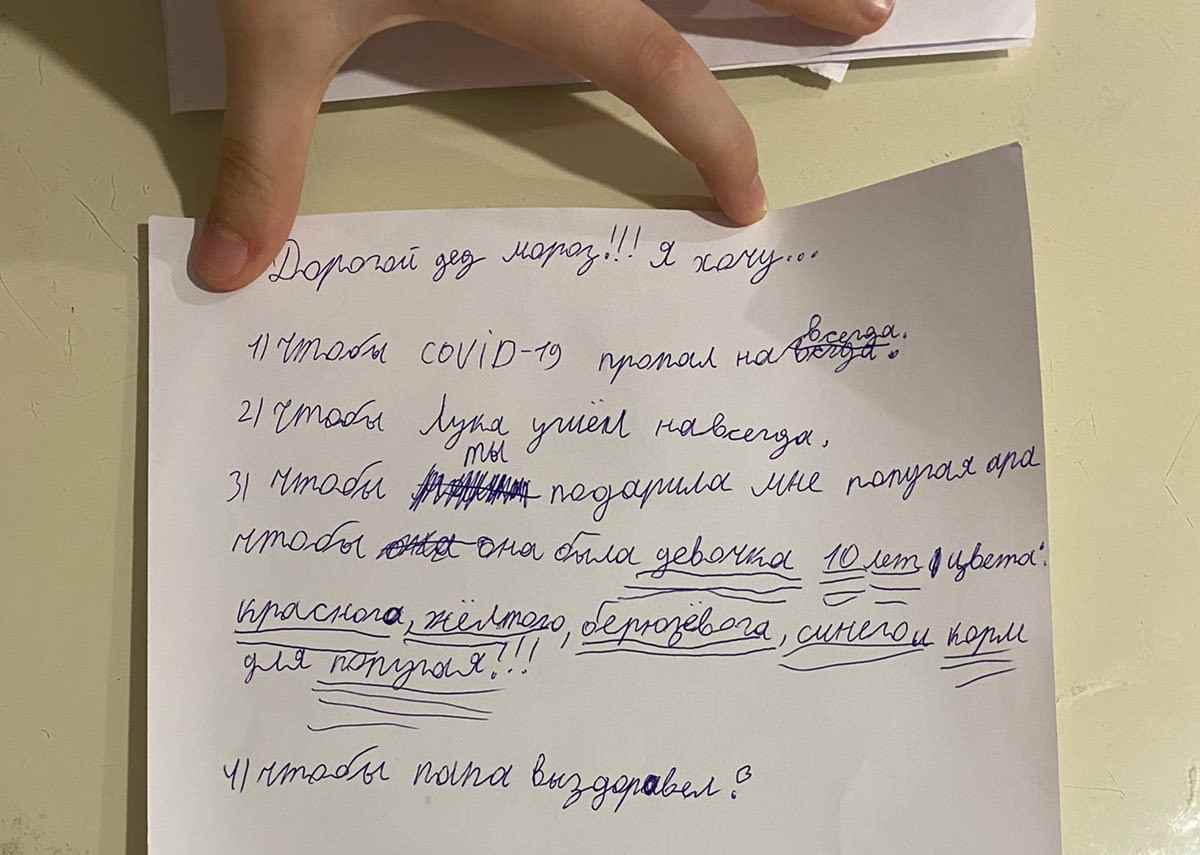 Дорогой дед мороз!!! Я хочу...
1) Чтобы COVID-19 пропал на всегда.
2) Чтобы Лука ушёл навсегда.
3) Чтобы ты подарила мне попугая ара
чтобы она была девочка 10 лет, цвета:
красного, жёлтого, берюзёвога, синего и корм
для попугая!!!
4) чтобы папа выздоравел.